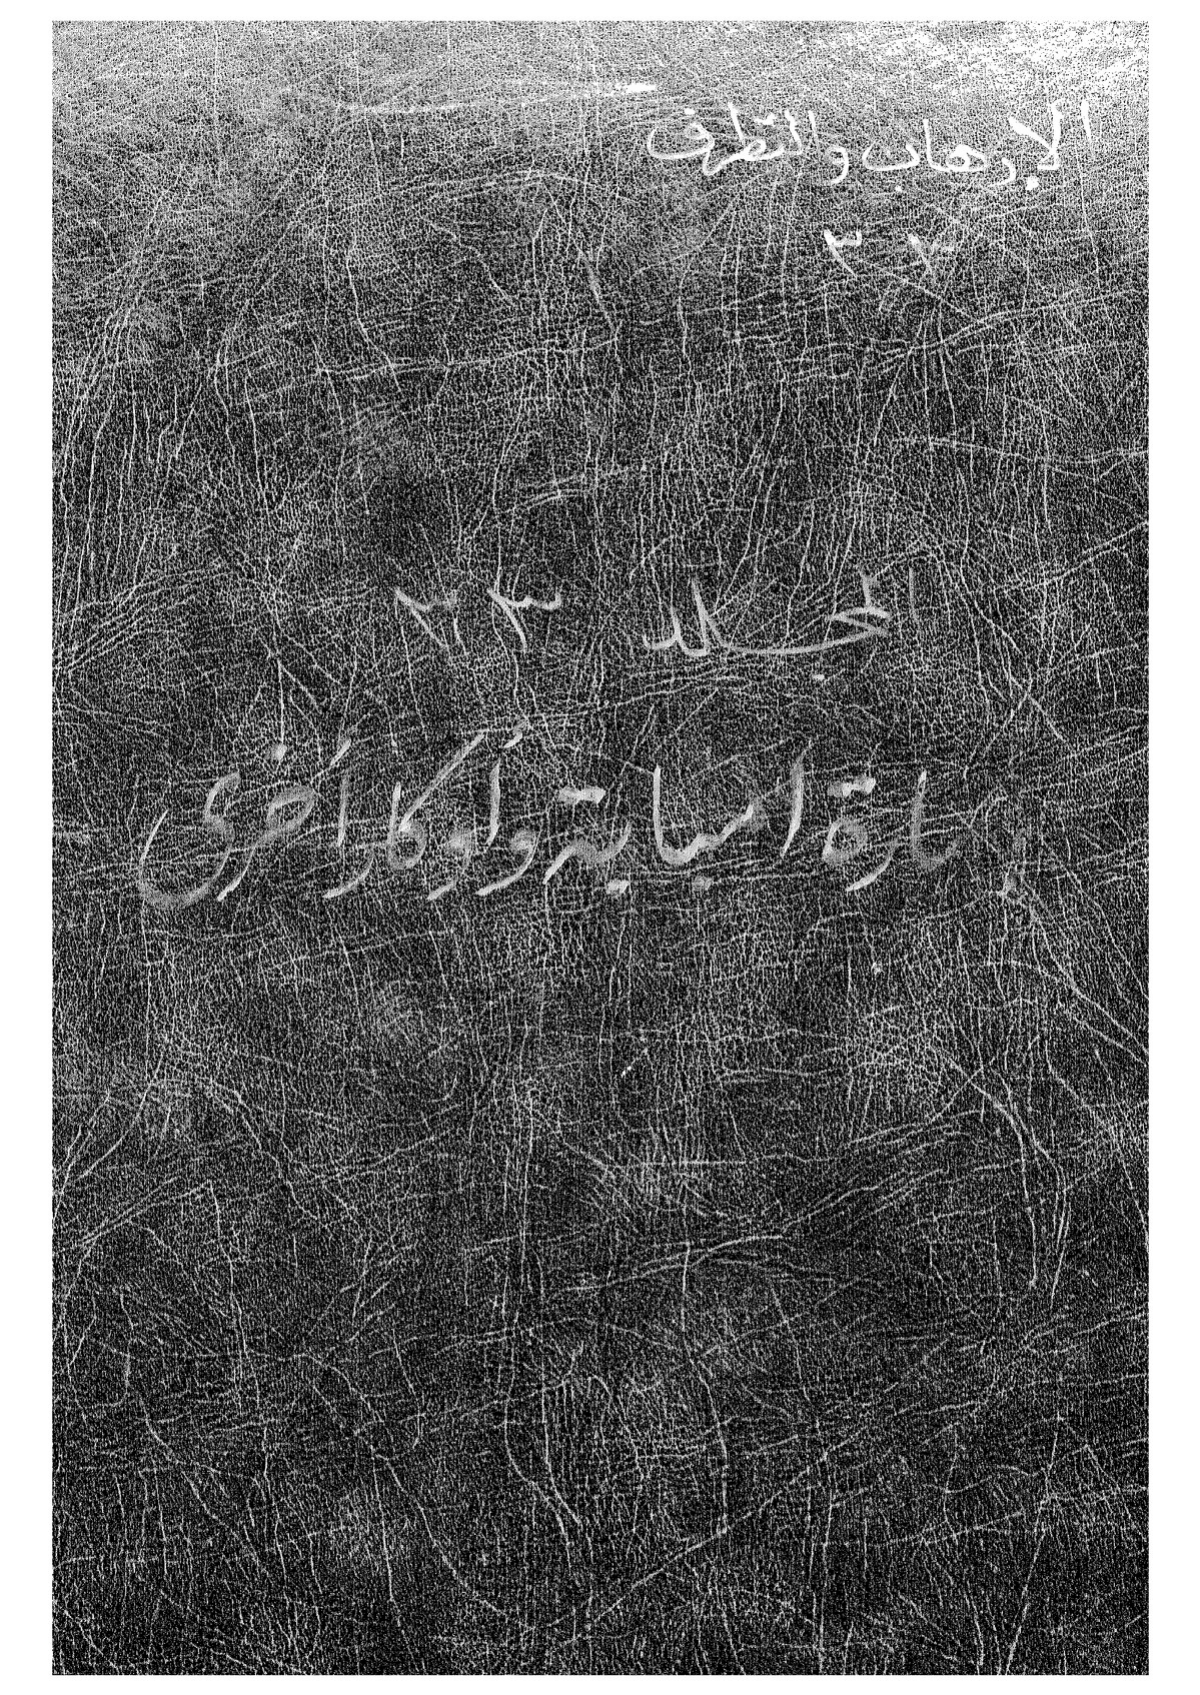 الإرهاب والتطرف
المجلد ٣٣
إمارة امبابة وأوكار أخرى